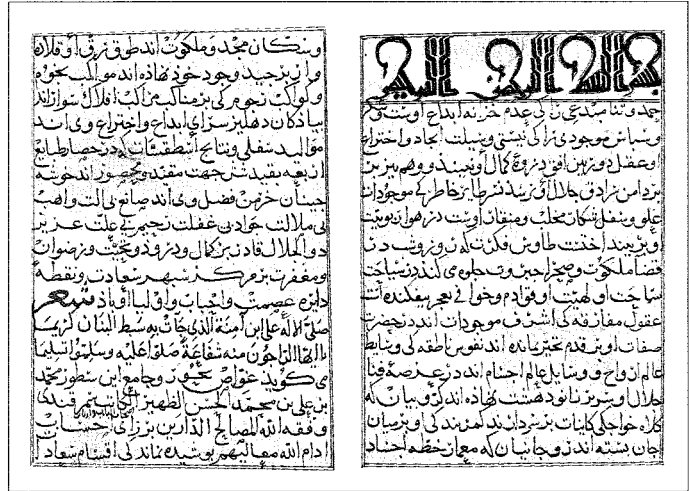 بسم الله الرحمن الرحيم
حمد و ثنا مبدعی را کی عدم خزینه ابداع اوست و شکر
و سپاس موجودی را کی نیستی وسیلت ایجاد و اختراع
او عقل دوربین افق ذروهٔ کمال او نبیند و وهم تیزبین
بر دامن سرادق جلال او طایر خاطر کی موجودات
علوی و سفلی شکار مخلب و منقار اوست در هوای
او نپرد اندیشه طاوس فکرت کی در
فضا ملکوت و صحرا جبروت جلوه می کند در سیاحت
ساحت او قوادم و خوافی عجز بیفکنده است
عقول مفارقه کی اشرف موجودات اند در حضرت
صفات او بر قدم تحیر مانده اند نفوس ناطقه کی وسایط
عالم ارواح و وسایل عالم اجسام اند در عرصهٔ فنا
جلال او سر بزانو دهشت نهاده اند کروبیان که
کلاه خواجگی کاینات بر سر دارند کمر بندگی او بر میان
جان بسته اند روحانیان که معمار خطه اجساد
و سکان مجد و ملکوت اند طوق رق او قلاده
وار بر جید وجود خود نهاده اند مواکب نجوم
و کواکب نجوم کی بر مناکب مراکب افلاک سوار اند
پیادگان دهلیز سرای ابداع و اختراع وی اند
موالید سفلی و نتایج اسطقسات که در حصار طبایع
اربعه بقید شش جهت مقید و محصور اند خوشه
چینان خرمن فضل وی اند صانع بی آلت واهب
بی ملالت جواد بی غفلت رحیم بی علت عزیز
ذو الجلال قادر بر کمال و درود و تحیت و رضوان
و مغفرت بر مرکز سپهر سعادت و نقطهٔ
دایره عصمت واصحاب واقربا او باد شعر
صلی الاله علی ابن آمنة الذی جاءت به سبط البنان کریما
یا ایها الراجون منه شفاعة صلوا علیه وسلموا تسلیما
می گوید غواص این بحور و جامع این سطور محمد
بن علی بن محمد الحسن الظهیری الکاتب السمرقندی
وفقه الله لمصالح الدارین بر رای اصحاب
ادام الله معالیهم پوشیده نماند کی اقسام سعادات